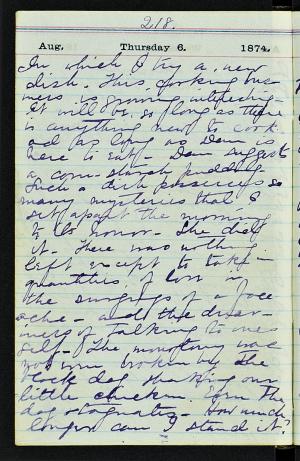 218.
Aug. Thursday 6. 1874.
In which I try a new
dish. This cooking
is growing interesting.
It will be so long as there
is anything new to cook
and as long as Dan is
here to eat. Dan suggests
a corn-starch pudding
Such a dish possesses so
many mysteries that I
set apart the morning
to its honor. She died
it. There was nothing
left except to take
quantities of corn in
the of a face
ache - and the
of talking to one's
self. The monotony was
broken by the
black dog shaking our
little chicken. Even the
dog stagnates. How much
longer can I stand it?